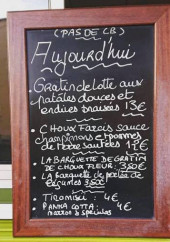 (PAS DE CB)
Aujourd'hui
Gratin de lote aux
patates douces et
endives braisées 13€
• CHOUX FARCIS sauce
champignons et pommes
de terre sautées 12€
• LA BARQUETTE DE GRATIN
DE CHOUX FLEUR: 3,50€
LA BARQUETTE de poelée de
légumes 3,50€
• TIRAMISU : 4€
• PANNA COTTA : 4€
marron & spéculos